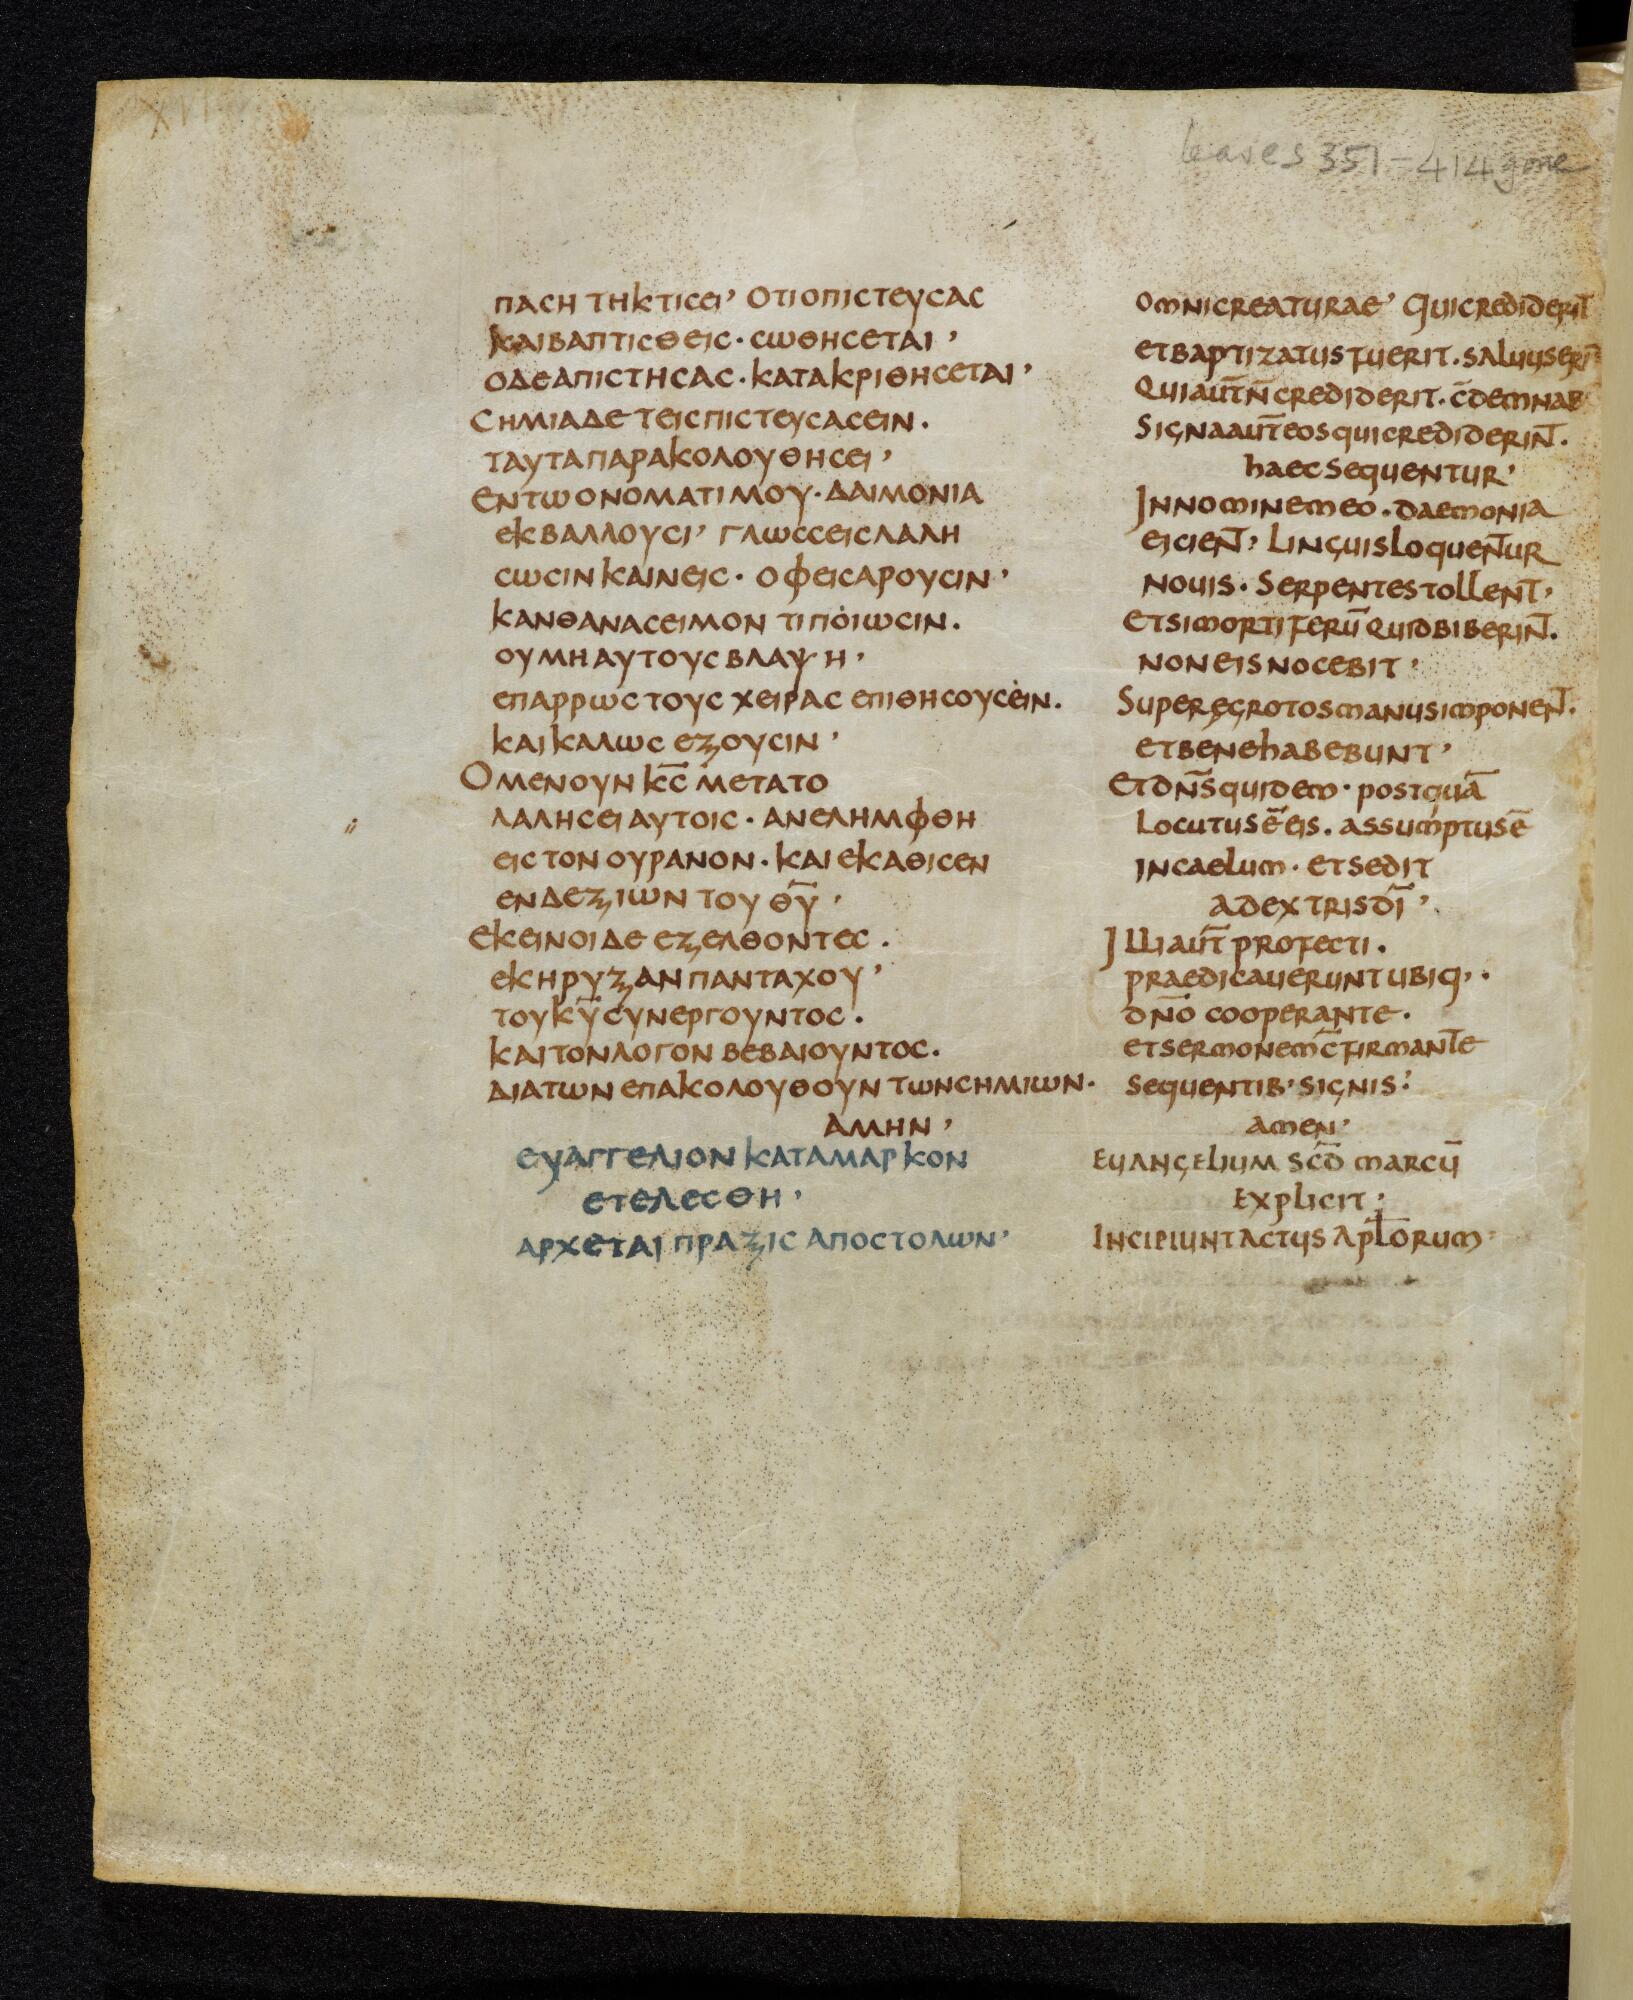 leaves 351-414 gone
ΠΑCΗ ΤΗΚΤΙCΕΙ’ ΟΤΙΟΠΙCΤΕΥCΑC
ΚΑΙΒΑΠΤΙCΘΕΙC· CΩΘΗCΕΤΑΙ’
ΟΔΕΑΠΙCΤΗCΑC· ΚΑΤΑΚΡΙΘΗCΕΤΑΙ’
CΗΜΙΑΔΕ ΤΕΙCΠΙCΤΕΥCΑCΕΙΝ·
ΤΑΥΤΑΠΑΡΑΚΟΛΟΥΘΗCΕΙ’
ΕΝΤΩΟΝΟΜΑΤΙΜΟΥ· ΔΑΙΜΟΝΙΑ
ΕΚΒΑΛΛΟΥCΙ’ ΓΛΩCCΕΙCΛΑΛΗ
CΩCΙΝΚΑΙΝΕΙC· ΟΦΕΙCΑΡΟΥCΙΝ’
ΚΑΝΘΑΝΑCΕΙΜΟΝ ΤΙΠΟΙΩCΙΝ·
ΟΥΜΗΑΥΤΟΥCΒΛΑΨΗ’
ΕΠΑΡΡΩC ΤΟΥC ΧΕΙΡΑC ΕΠΙΘΗCΟΥCΕΙΝ·
ΚΑΙΚΑΛΩC ΕΞΟΥCΙΝ’
ΟΜΕΝΟΥΝ Κ̅C̅ ΜΕΤΑΤΟ
ΛΑΛΗCΕΙΑΥΤΟΙC· ΑΝΕΛΗΜΦΘΗ
ΕΙCΤΟΝΟΥΡΑΝΟΝ· ΚΑΙΕΚΑΘΙCΕΝ
ΕΝΔΕΞΙΩΝ ΤΟΥ Θ̅Υ̅’
ΕΚΕΙΝΟΙΔΕ ΕΞΕΛΘΟΝΤΕC·
ΕΚΗΡΥΞΑΝΠΑΝΤΑΧΟΥ’
ΤΟΥΚ̅Υ̅CΥΝΕΡΓΟΥΝΤΟC·
ΚΑΙΤΟΝΛΟΓΟΝ ΒΕΒΑΙΟΥΝΤΟC·
ΔΙΑΤΩΝ ΕΠΑΚΟΛΟΥΘΟΥΝΤΩΝCΗΜΙΩΝ·
ΑΜΗΝ’
ΕΥΑΓΓΕΛΙΟΝ ΚΑΤΑΜΑΡΚΟΝ
ΕΤΕΛΕCΘΗ’
ΑΡΧΕΤΑΙ ΠΡΑΞΙC ΑΠΟCΤΟΛΩΝ’
omnicreaturae’ Quicrediderit̅
etbaptizatusfuerit· saluuseri̅
Quiaut̅n̅crediderit· c̅demnab
Signaaut̅eosquicrediderin̅t·
haecsequentur’
Innominemeo· daemonia
eicien̅t’ Linguisloquen̅tur
nouis· Serpentestollen̅t’
etsimortiferu̅quidbiberin̅t·
noneisnocebit’
Superęgrotosmanusimponen̅t·
etbenehabebunt’
Etdn̅squidem· postqua̅
locutuse̅eis· assumptuse̅
incaelum· etsedit
adextrisdi̅’
Illiaut̅ profecti·
praedicaueruntubiq,·
dn̅o cooperante·
etsermonemc̅firman̅te
sequentib’ signis:
amen’
Euangelium sc̅d marcu̅
Explicit;
Incipiunt actus apl̅orum·